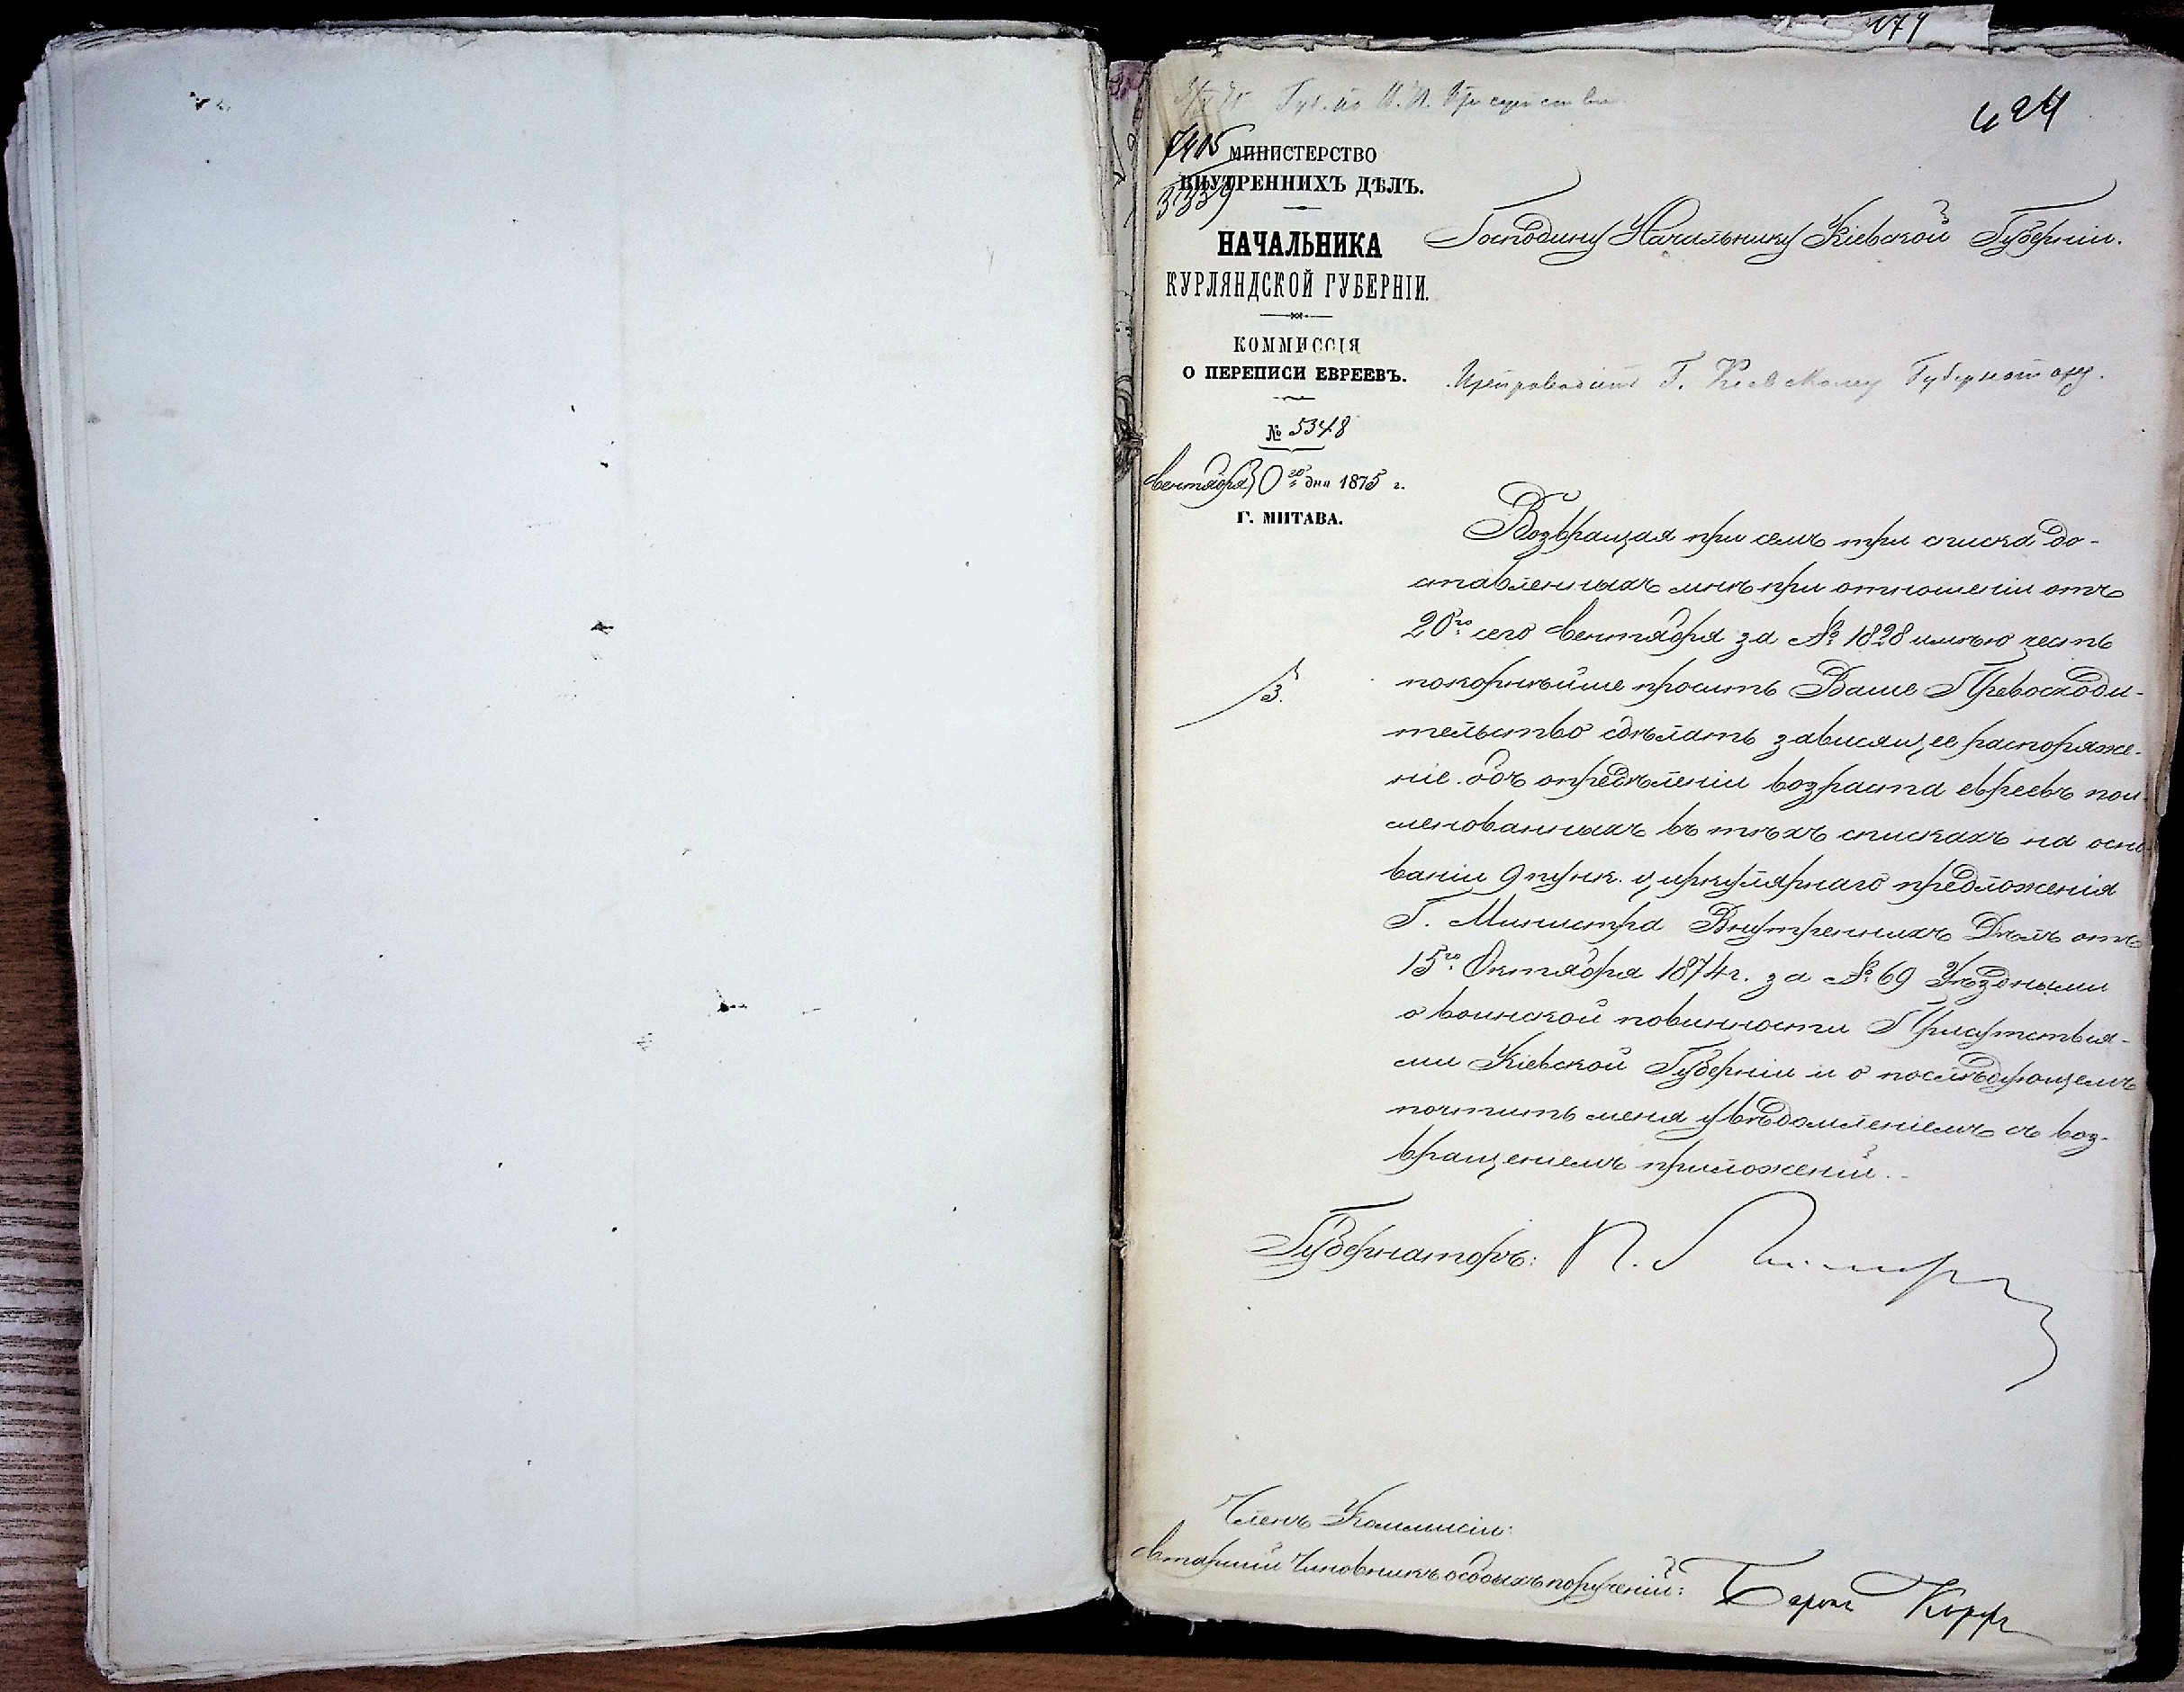 174
424
7405
3339
МИНИСТЕРСТВО
ВНУТРЕННИХЪ ДѢЛЪ.
НАЧАЛЬНИКА
КУРЛЯНДСКОЙ ГУБЕРНІИ.
КОММИССІЯ
О ПЕРЕПИСИ ЕВРЕЕВЪ.
№ 5348
Сентября 30 го дня 1875 г.
Г. МИТАВА.
Господину Начальнику Кіевской Губерніи.
Г. Кіевскому Губернатору.
Возвращая при семъ три списка до-
ставленныхъ мнѣ при отношеніи отъ
20го сего Сентября за № 1828 имѣю честь
покорнѣйше просить Ваше Превосходи-
тельство сдѣлать зависящее распоряже-
ніе объ опредѣленіи возраста евреевъ пои-
менованныхъ въ тѣхъ спискахъ на осно-
ваніи 9 пунк. циркулярнаго предложенія
Г. Министра Внутреннихъ Дѣлъ отъ
15го Октября 1874 г. за № 69 Уѣздными
о воинской повинности Присутствія-
ми Кіевской Губерніи и о послѣдующемъ
почтить меня увѣдомленіемъ съ воз-
вращеніемъ приложеній.
3.
Губернаторъ: П.
Членъ Коммисіи:
Старшій Чиновникъ особыхъ порученій: Баронъ Корфъ